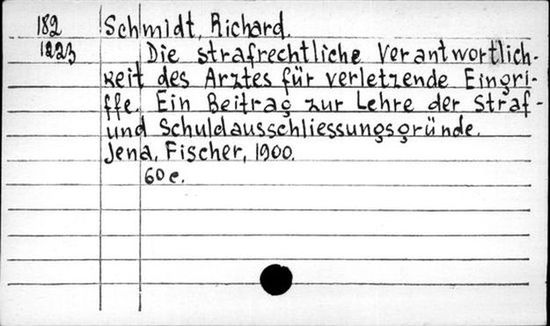 182 Schmidt, Richard.
1223 Die strafrechtliche Verantwortlich-
keit des Arztes für verletzende Eingri-
ffe. Ein Beitrag zur Lehre der Straf-
und Schuldausschliessungsgründe.
Jena, Fischer, 1900.
60 e.